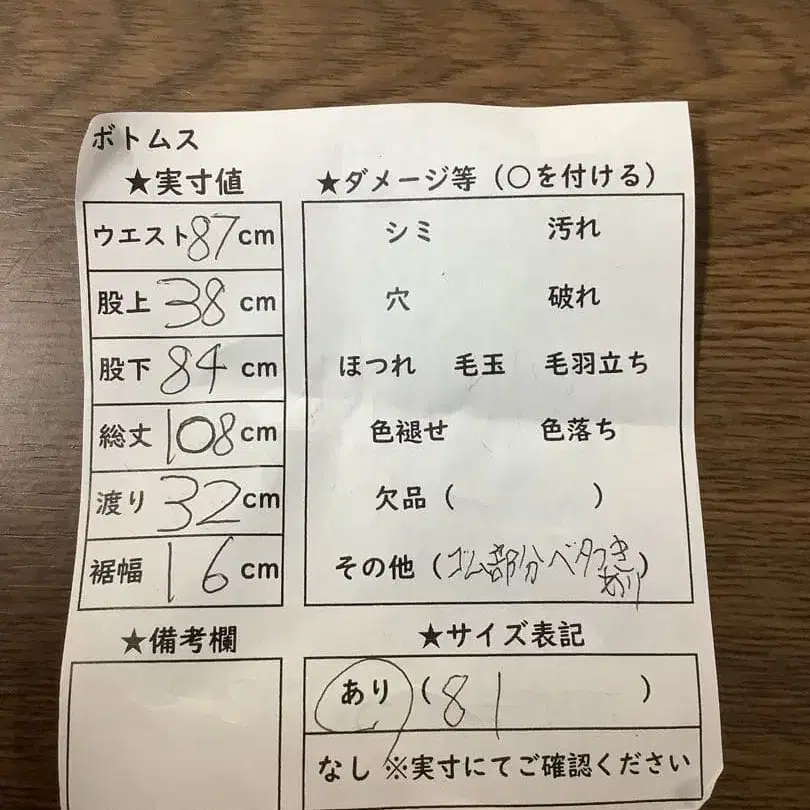 ボトムス
★実寸値
ウエスト87cm
股上 38 cm
股下 84 cm
総丈 108cm
渡り 32cm
裾幅 16 cm
★備考欄
★ダメージ等（〇を付ける）
シミ 汚れ
穴 破れ
ほつれ 毛玉 毛羽立ち
色褪せ 色落ち
欠品（ ）
その他（ゴム部分ベタつき
あり）
★サイズ表記
あり（81 ）
なし ※実寸にてご確認ください